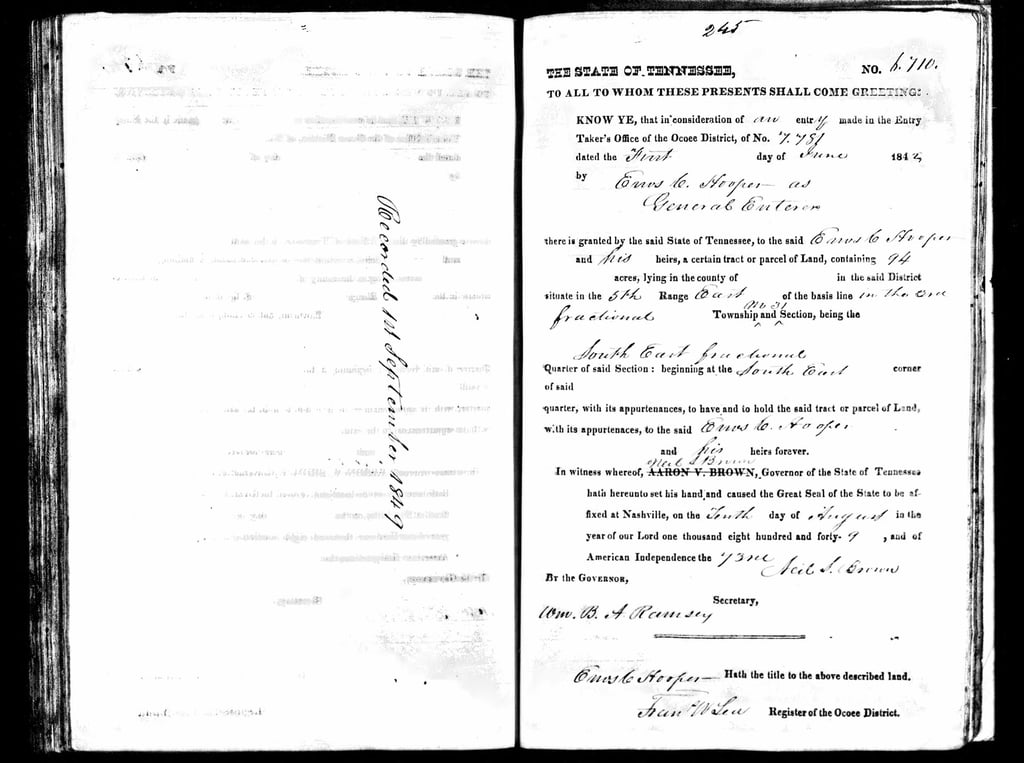 Recorded 1st September 1849
245
THE STATE OF TENNESSEE, NO. 6.710.
TO ALL TO WHOM THESE PRESENTS SHALL COME GREETING:
KNOW YE, that in consideration of an entry made in the Entry
Taker's Office of the Ocoee District, of No. 7.781
dated the First day of June 1842
by Enos C. Hooper as
General Enterer
there is granted by the said State of Tennessee, to the said Enos C Hooper
and his heirs, a certain tract or parcel of Land, containing 94
acres, lying in the county of in the said District
situate in the 5th Range East of the basis line in the 3rd
fractional Township and No 31 Section, being the
South East fractional
Quarter of said Section: beginning at the South East corner
of said
quarter, with its appurtenances, to have and to hold the said tract or parcel of Land,
with its appurtenaces, to the said Enos C. Hooper
and his heirs forever.
Neil S Brown
In witness whereof, AARON V. BROWN, Governor of the State of Tennessee
hath hereunto set his hand and caused the Great Seal of the State to be af-
fixed at Nashville, on the Tenth day of August in the
year of our Lord one thousand eight hundred and forty-9, and of
American Independence the 73rd
Neil S. Brown
BY THE GOVERNOR,
Secretary,
Wm. B. A. Ramsey
Enos C Hooper Hath the title to the above described land.
Fran W Lea Register of the Ocoee District.